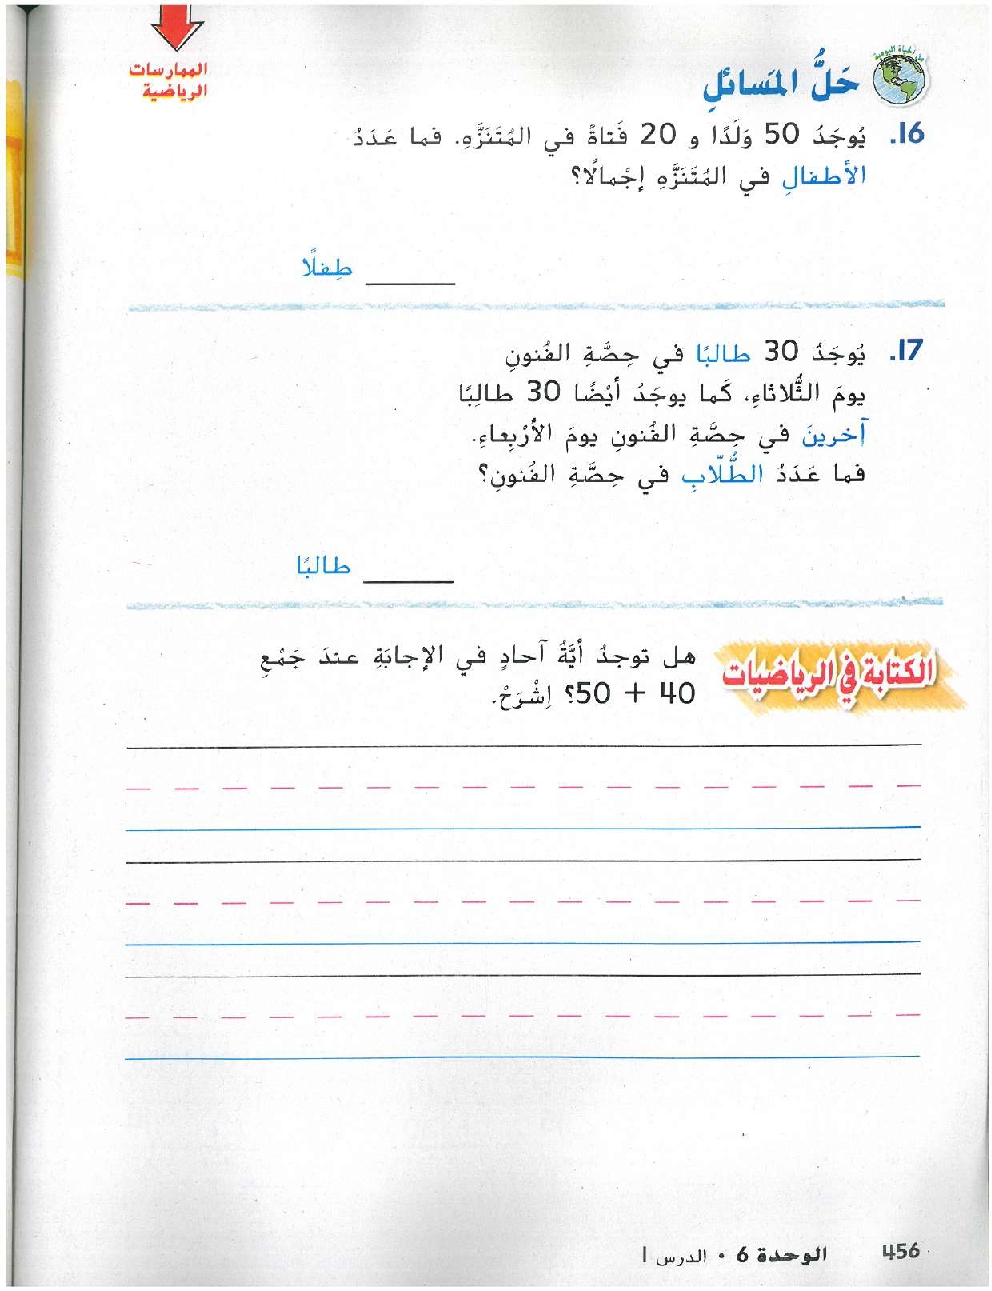 الممارسات
الرياضية
حَلُّ المَسائلِ
16. يُوجَدُ 50 وَلَدًا و 20 فَتاةً في المُتَنَزَّهِ. فما عَدَدُ
الأطفالِ في المُتَنَزَّهِ إجْمالًا؟
_____ طِفلًا
17. يُوجَدُ 30 طالبًا في حِصَّةِ الفُنونِ
يومَ الثُّلاثاءِ، كَما يوجَدُ أيْضًا 30 طالِبًا
آخرينَ في حِصَّةِ الفُنونِ يومَ الأرْبِعاءِ.
فما عَدَدُ الطُّلّابِ في حِصَّةِ الفُنونِ؟
_____ طالبًا
الكتابة في الرياضيات
هل توجدُ أيَّةُ آحادٍ في الإجابَةِ عندَ جَمْعِ
40 + 50؟ اِشْرَحْ.
456 الوحدة 6 • الدرس 1